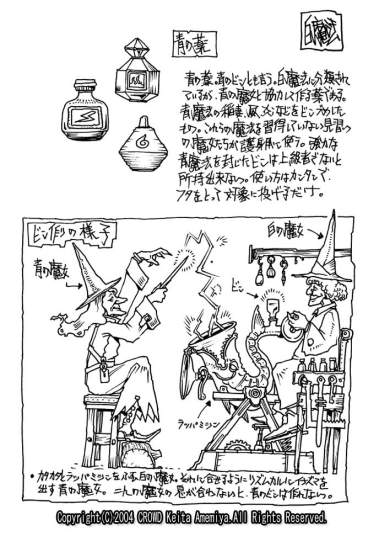 青の薬
白魔法
青の薬、青のビンとも言う。白魔法に分類されて
いるが、青の魔女と協力して作る薬である。
青魔法の稲妻、風、火などをビンづめした
もの。これらの魔法を習得していない見習い
の魔女たちが護身用に使う。強力な
青魔法を封じたビンは上級者でないと
所持出来ない。使い方はカンタンで、
フタをとって対象に投げるだけ。
ビン作りの様子
青の魔女
白の魔女
ビン
ラッパミシン
・カタカタとラッパミシンをふむ白の魔女。それに合せるようにリズミカルにイナズマを
出す青の魔女。二人の魔女の息が合わないと、青のビンは作れない。
Copyright(C)2004 CROWD Keita Amemiya.All Rights Reserved.